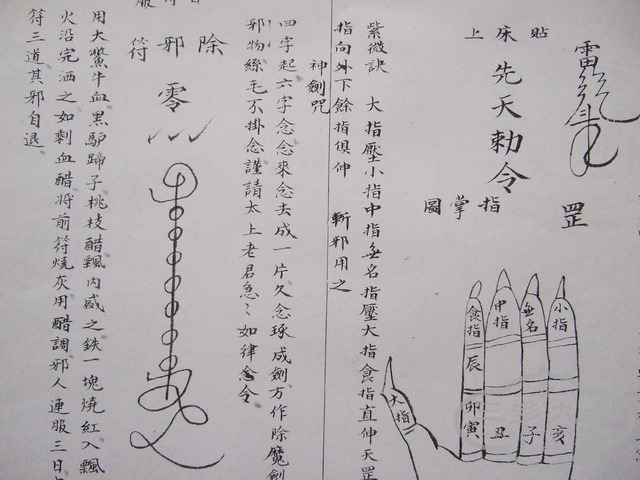 雷
貼床上
先天勅令
罡
指掌圖
小指
無名
中指
食指
大指
辰
卯寅
丑
子
亥
紫微訣 大指壓小指中指無名指壓大指食指直伸天罡
指向外下餘指俱伸 斬邪用之
神劍咒
四字起六字念念來念去成一片久念琢成劍方作除魔劍
邪物絲毛不掛念謹請太上老君急〻如律令
除邪符
零
用大鱉牛血黑驢蹄子桃枝醋瓢內盛之鉄一塊燒紅入瓢
火沿完洒之如剩血醋將前符燒灰用醋調邪人連服三日
符三道其邪自退